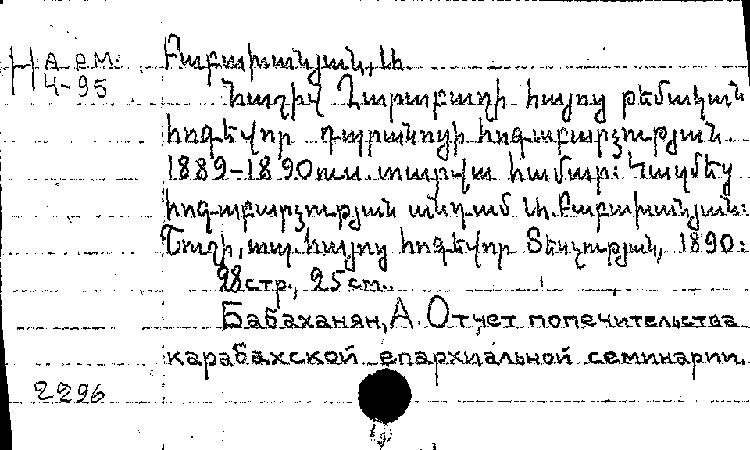 Арм.
4-95
Բաբախանյան, Ա.
Հաշիվ Ղարաբաղի հայոց թեմական
հոգևոր դպրանոցի հոգաբարչության
1889-1890 ուս. տարվա համար: Կազմեց
հոգաբարչության անդամ Ա. Բաբախանյան:
Շուշի, տպ. հայոց հոգևոր Տեսչության, 1890:
28 стр., 25 см.
Бабаханян, А. Отчет попечительства
карабахской епархиальной семинарии.
2296